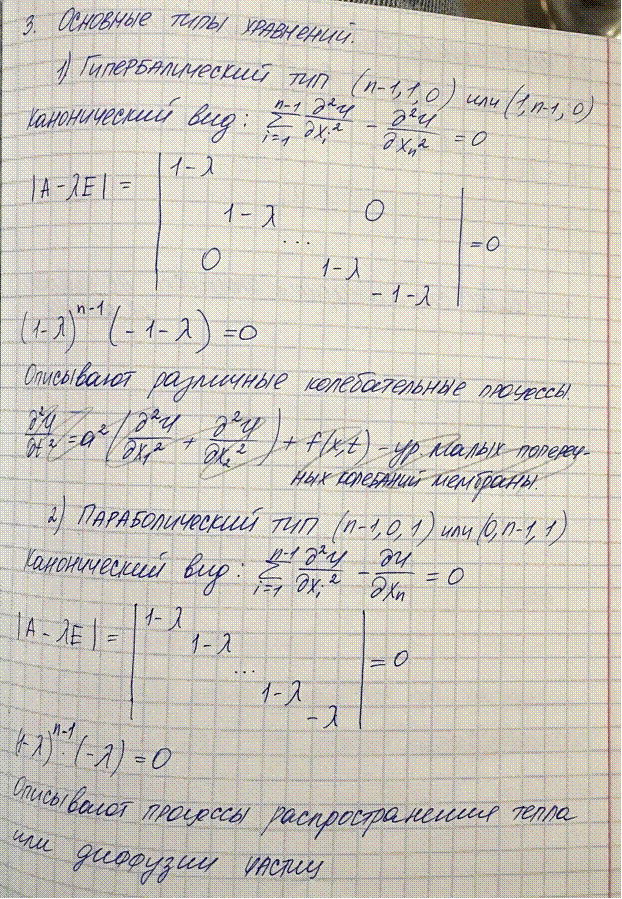 3. Основные типы уравнений.
1) Гипербалический тип (n-1,1,0) или (1,n-1,0)
Канонический вид: ∑_{i=1}^{n-1} ∂²u/∂x_i² - ∂²u/∂x_n² = 0
|A - λE| = | 1-λ
1-λ 0
... = 0
0 1-λ
-1-λ |
(1-λ)^{n-1} (-1-λ) = 0
Описывают различные колебательные процессы.
∂²u/∂t² = a² (∂²u/∂x_1² + ∂²u/∂x_2²) + f(x,t) - ур. малых попереч-
ных колебаний мембраны.
2) Параболический тип (n-1,0,1) или (0,n-1,1)
Канонический вид: ∑_{i=1}^{n-1} ∂²u/∂x_i² - ∂u/∂x_n = 0
|A - λE| = | 1-λ
1-λ
... = 0
1-λ
-λ |
(1-λ)^{n-1} (-λ) = 0
Описывают процессы распространения тепла
или диффузии частиц